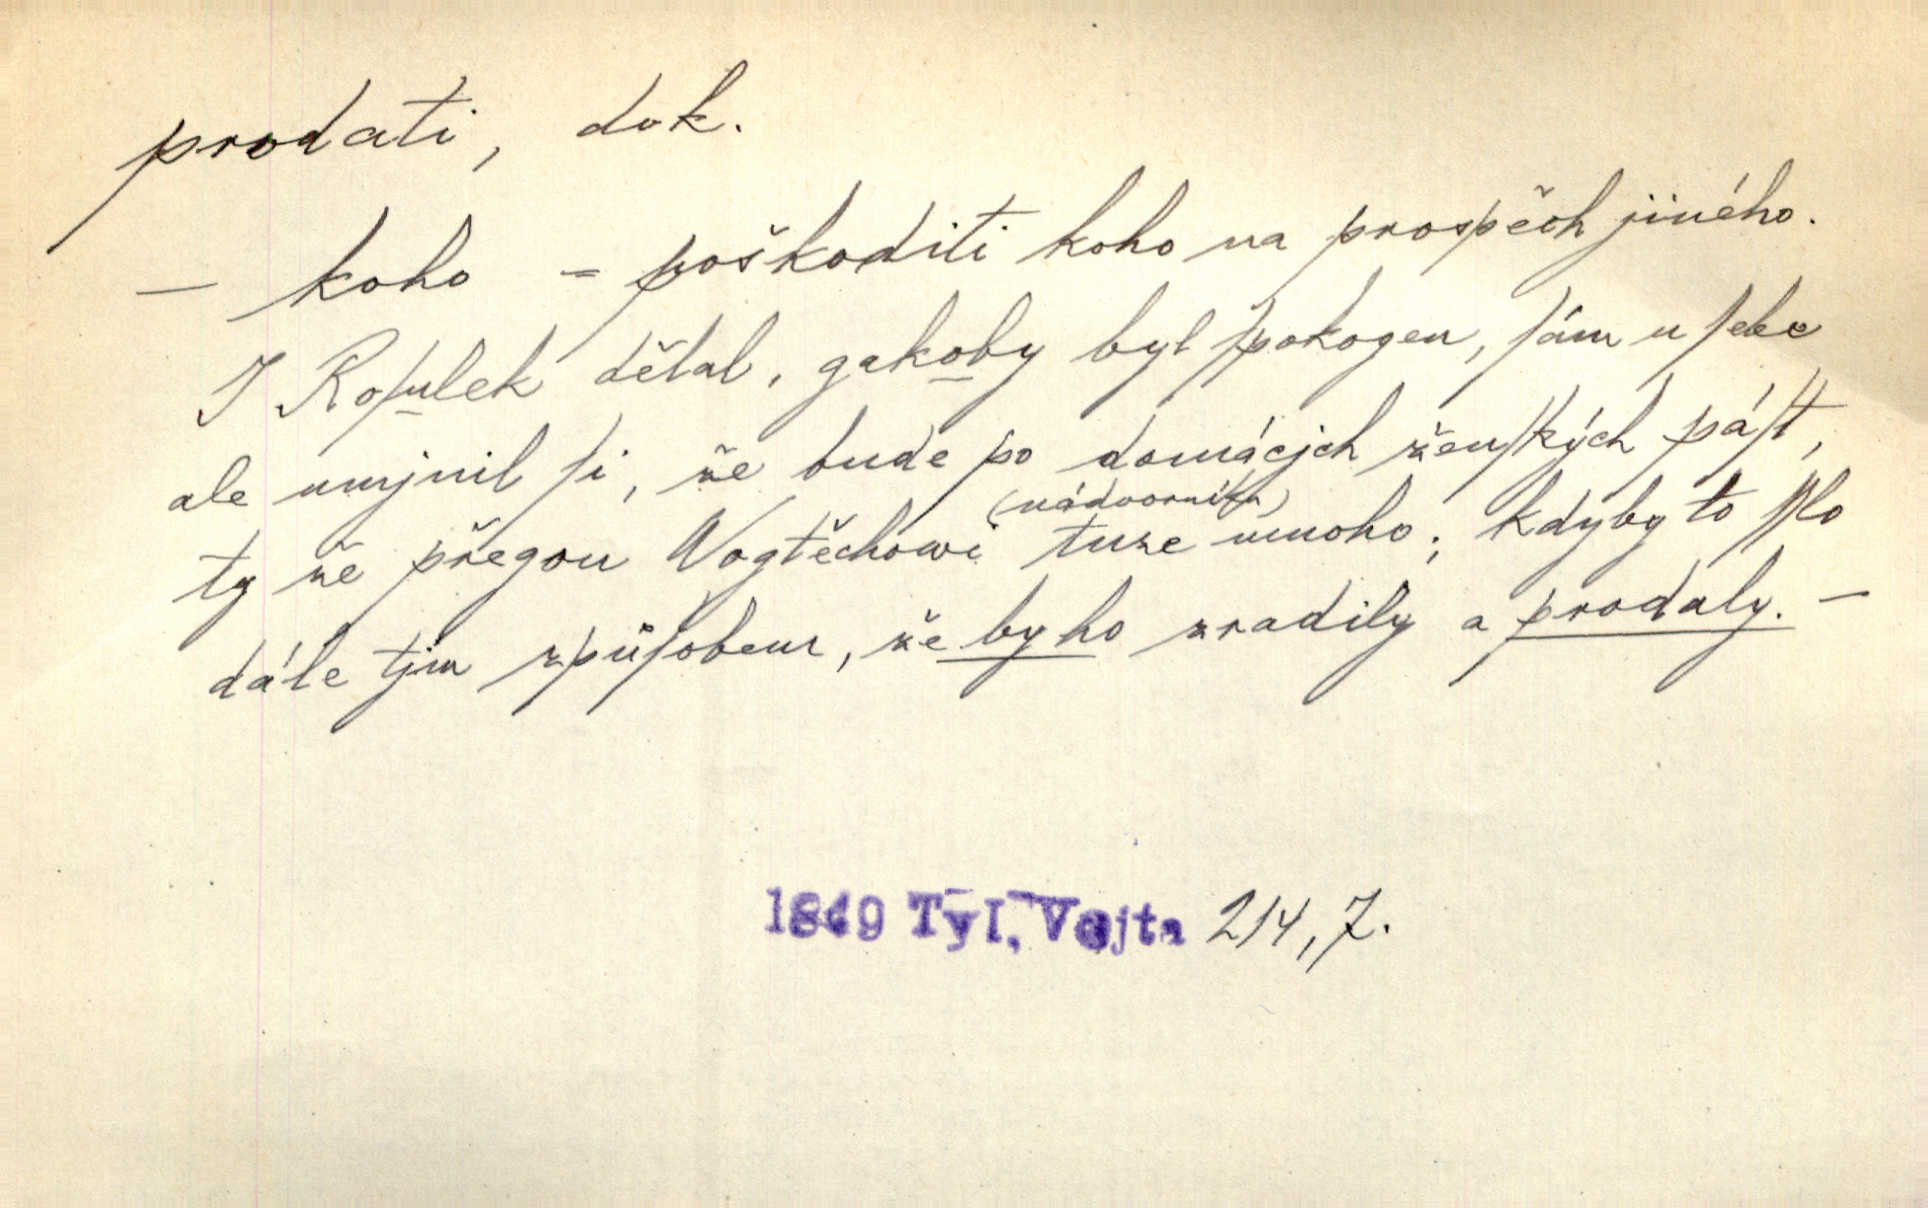 prodati, dok.
— koho = poškoditi koho na prospěch jiného.
I Roſulek dělal, gakoby byl ſpokogen, ſám u ſebe
ale umjnil ſi, že bude po domácjch ženſkých páſt,
(nádvorník)
ty že přegou Wogtěchowi tuze mnoho; kdyby to ſſlo
dále tjm způſobem, že by ho zradily a prodaly. —
1849 Tyl, Vojta 214,7.